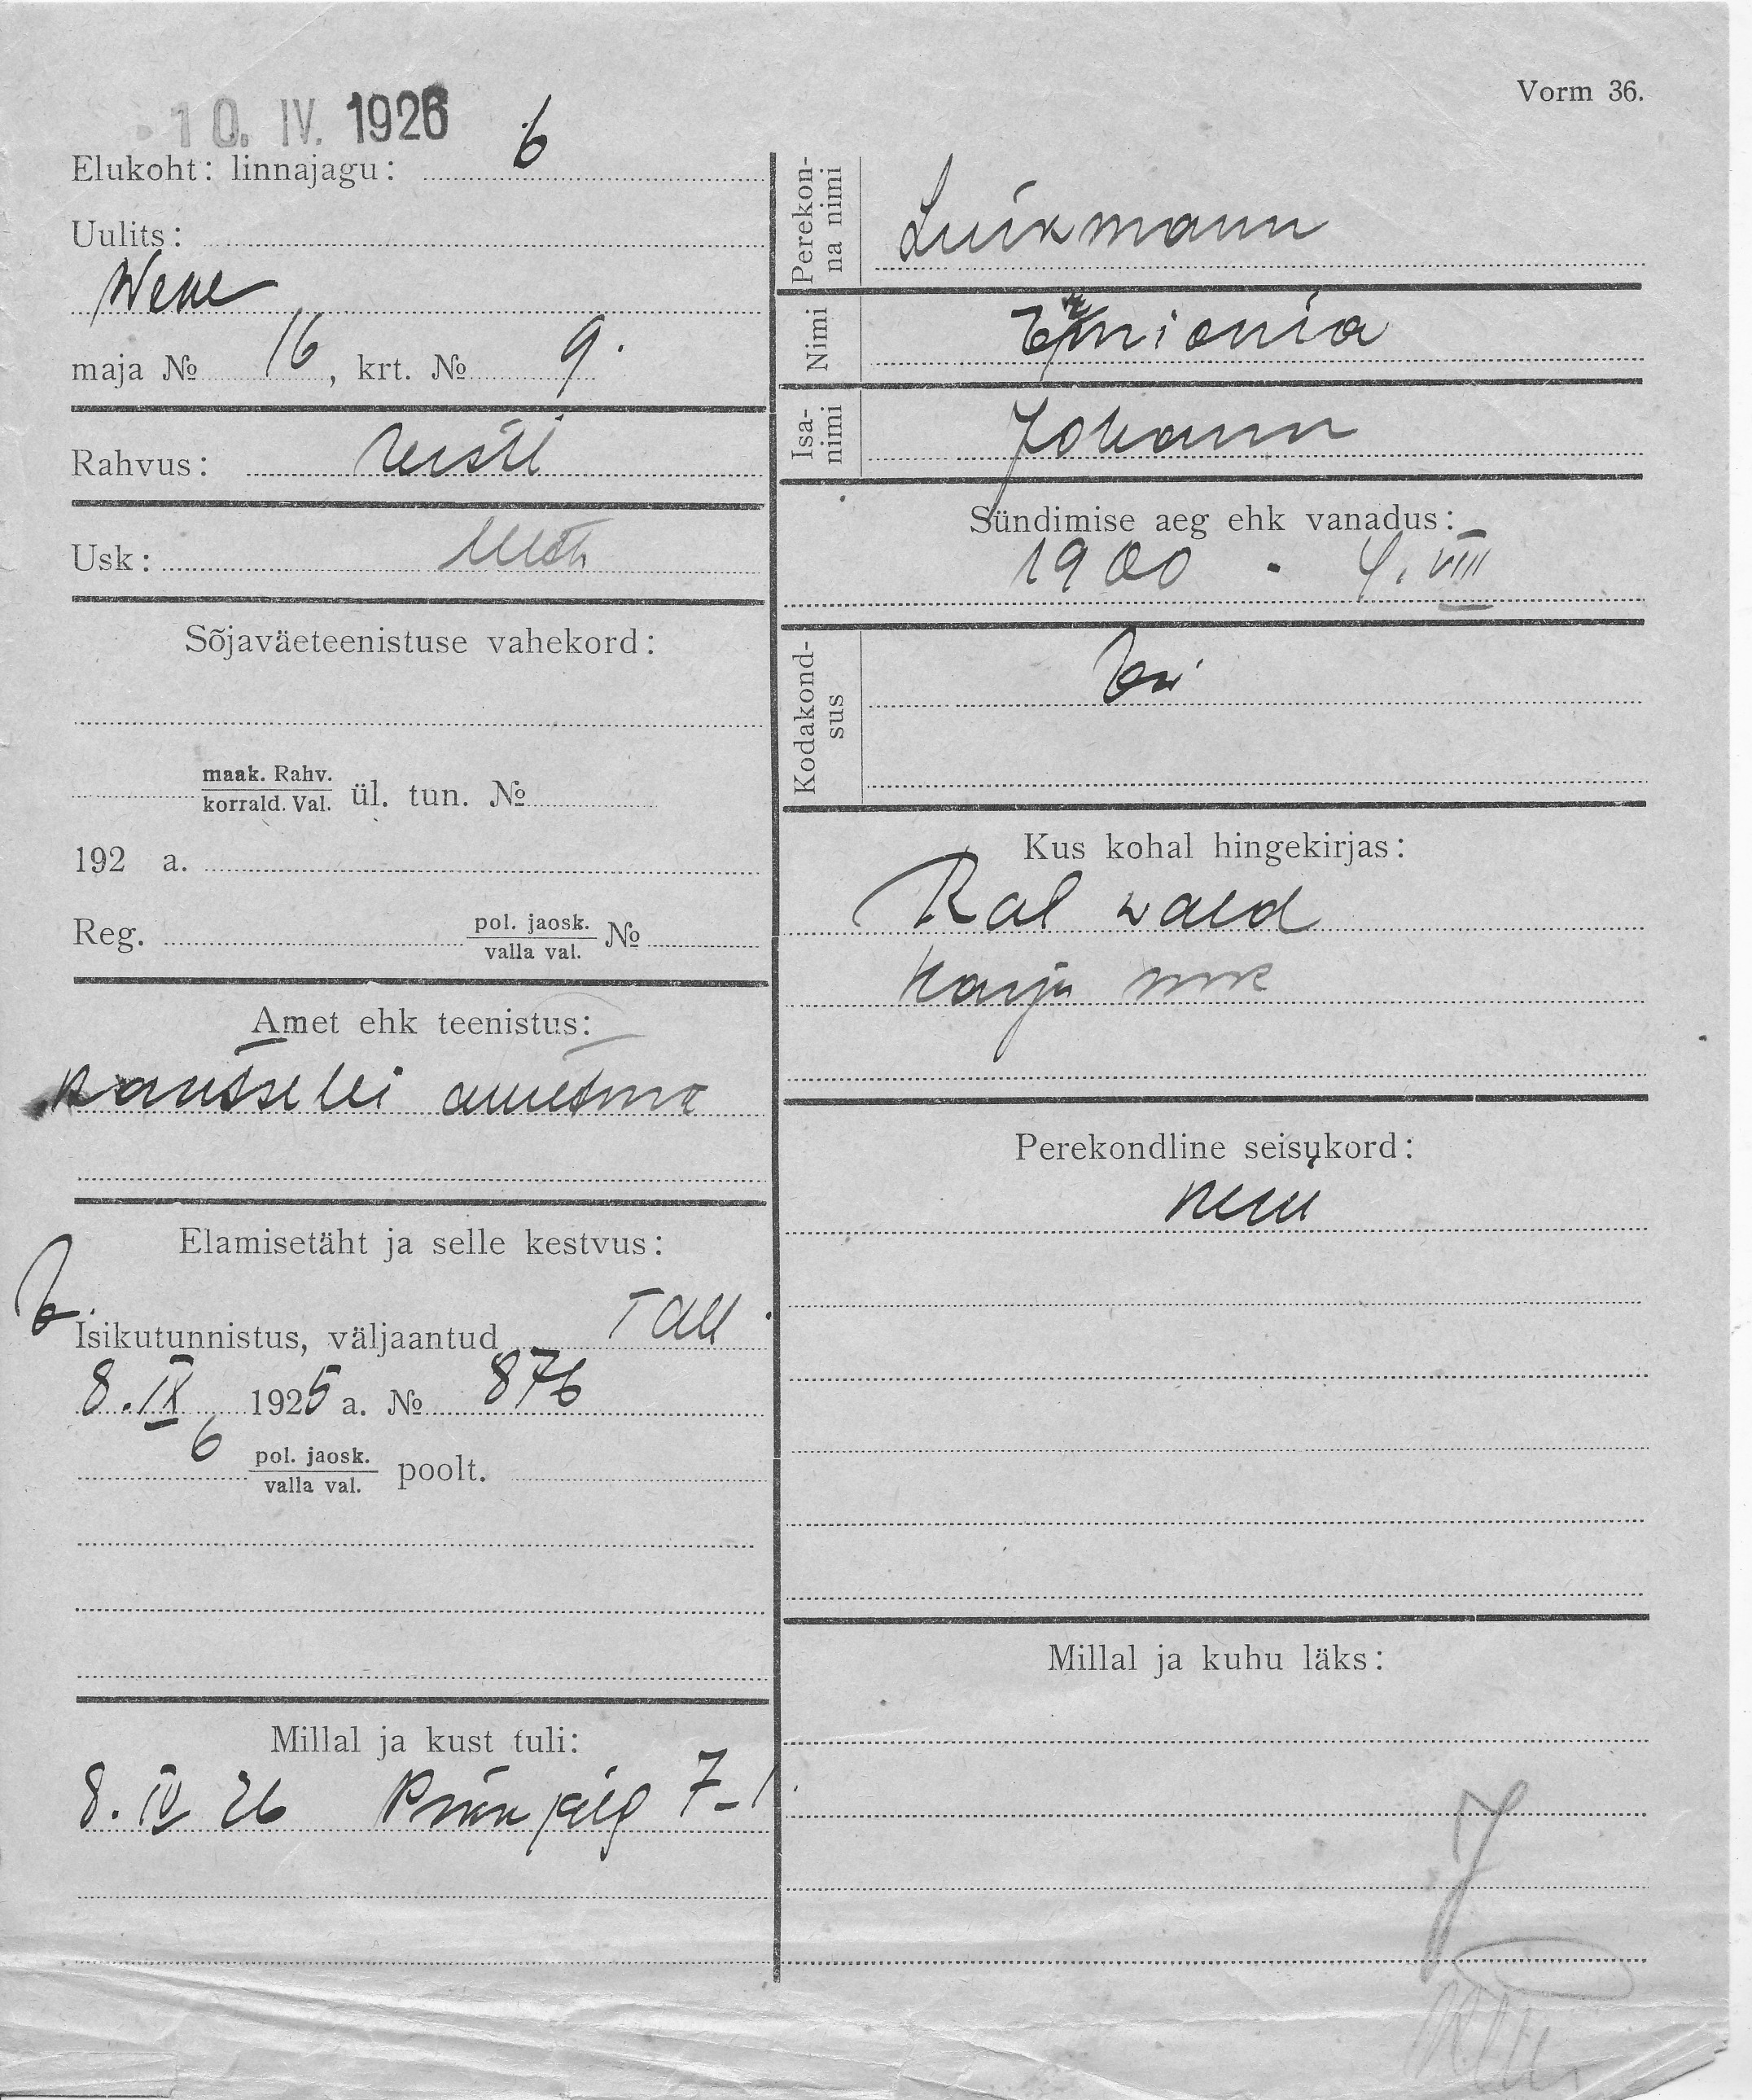 Vorm 36.
10. IV. 1926
Elukoht: linnajagu: 6
Uulits:
Wene
maja № 16, krt. № 9.
Rahvus: eesti
Usk: luth
Sõjaväeteenistuse vahekord:
maak. Rahv.
korrald. Val. ül. tun. №
192 a.
Reg. pol. jaosk.
valla val. №
Amet ehk teenistus:
kantselei ametnik
Elamisetäht ja selle kestvus:
Isikutunnistus, väljaantud Tall.
8. IX 1925 a. № 876
6 pol. jaosk.
valla val. poolt.
Millal ja kust tuli:
8. IV 26 7-1
Perekon-
na nimi Luikmann
Nimi
Isa-
nimi Johann
Sündimise aeg ehk vanadus:
1900 . 4. VIII
Kodakond-
sus
Kus kohal hingekirjas:
wald
Harju mk
Perekondline seisukord:
Millal ja kuhu läks: